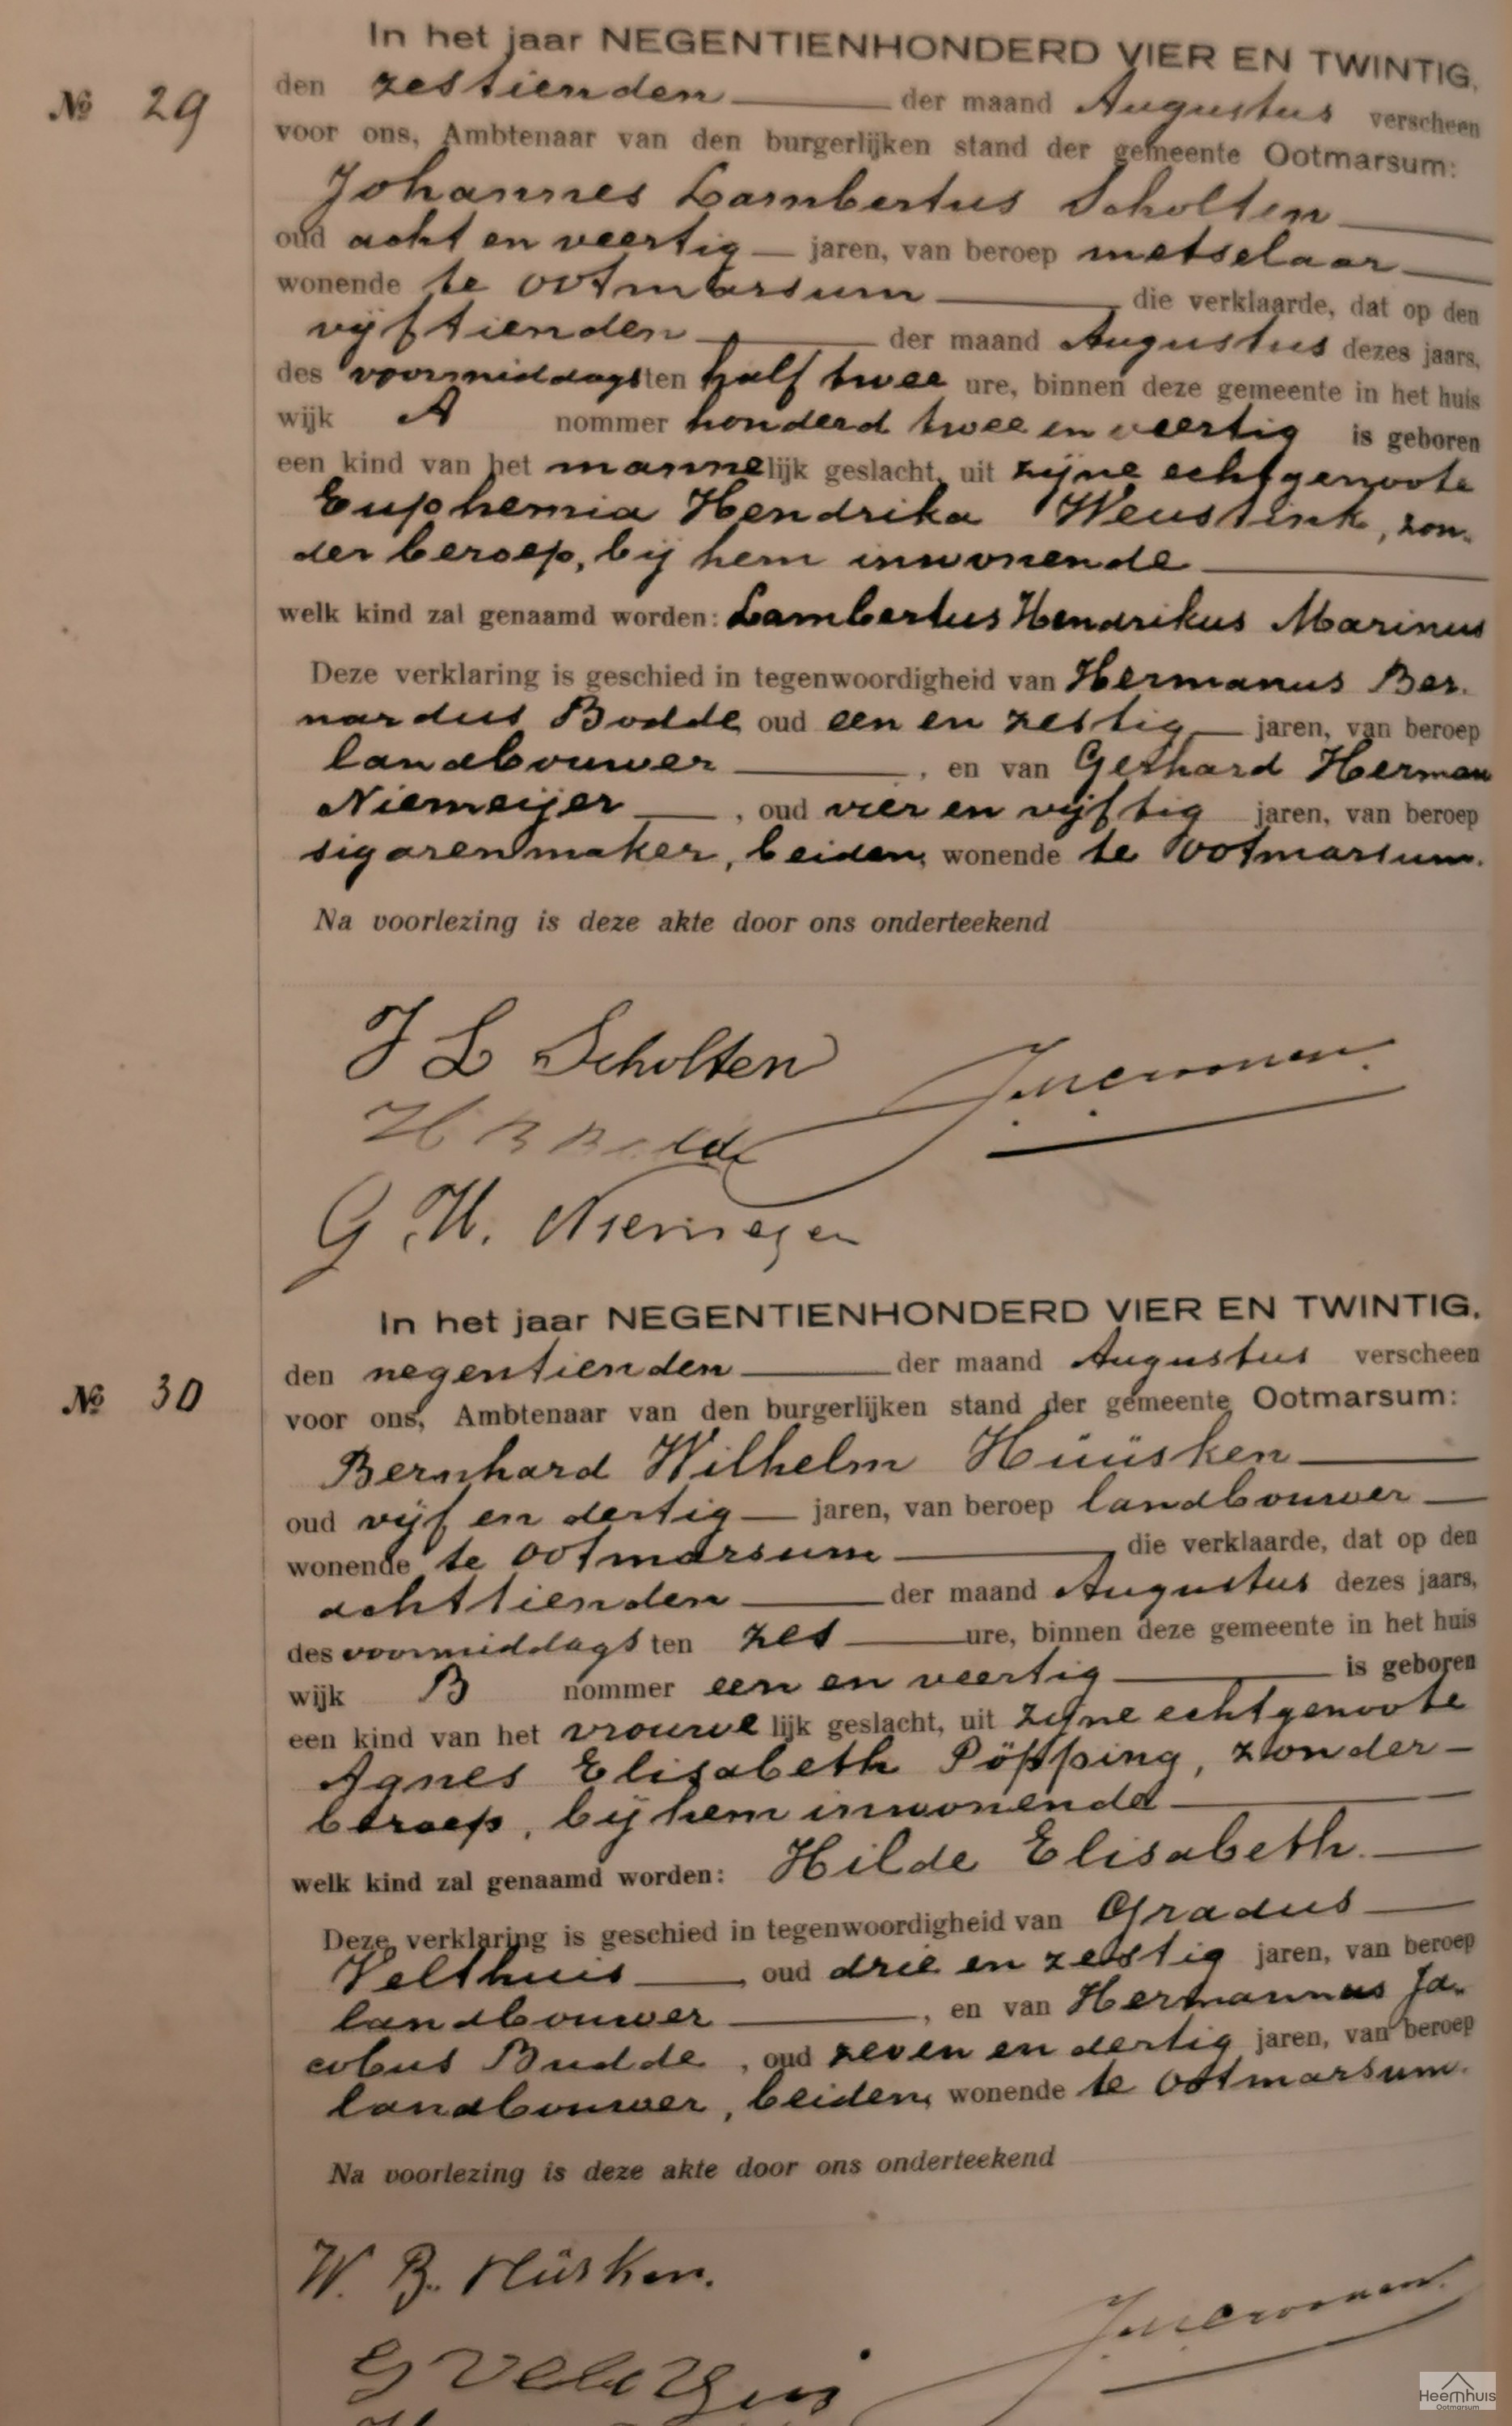 In het jaar NEGENTIENHONDERD VIER EN TWINTIG,
№ 29
den zestienden der maand Augustus verscheen
voor ons, Ambtenaar van den burgerlijken stand der gemeente Ootmarsum:
Johannes Lambertus Scholten
oud acht en veertig jaren, van beroep metselaar
wonende te Ootmarsum die verklaarde, dat op den
vijftienden der maand Augustus dezes jaars,
des voormiddags ten half twee ure, binnen deze gemeente in het huis
wijk A nommer honderd twee en veertig is geboren
een kind van het mannelijk geslacht, uit zijne echtgenoote
Euphemia Hendrika Weustink, zon-
der beroep, bij hem inwonende
welk kind zal genaamd worden: Lambertus Hendrikus Marinus
Deze verklaring is geschied in tegenwoordigheid van Hermanus Ber-
nardus Bodde, oud een en zestig jaren, van beroep
landbouwer, en van Gerhard Herman
Niemeijer, oud vier en vijftig jaren, van beroep
sigarenmaker, beiden, wonende te Ootmarsum.
Na voorlezing is deze akte door ons onderteekend
J L Scholten
H B
G. H. Niemeyer
In het jaar NEGENTIENHONDERD VIER EN TWINTIG.
№ 30
den negentienden der maand Augustus verscheen
voor ons, Ambtenaar van den burgerlijken stand der gemeente Ootmarsum:
Bernhard Wilhelm Hüüsken
oud vijf en dertig jaren, van beroep landbouwer
wonende te Ootmarsum die verklaarde, dat op den
achttienden der maand Augustus dezes jaars,
des voormiddags ten zes ure, binnen deze gemeente in het huis
wijk B nommer een en veertig is geboren
een kind van het vrouwelijk geslacht, uit zijne echtgenoote
Agnes Elisabeth Pöpping, zonder-
beroep, bij hem inwonende
welk kind zal genaamd worden: Hilde Elisabeth.
Deze verklaring is geschied in tegenwoordigheid van Gradus
Velthuis, oud drie en zestig jaren, van beroep
landbouwer, en van Hermannus Ja-
cobus Budde, oud zeven en dertig jaren, van beroep
landbouwer, beiden, wonende te Ootmarsum.
Na voorlezing is deze akte door ons onderteekend
W. B. Hüsken.
G Velthuis
Heemhuis
Ootmarsum